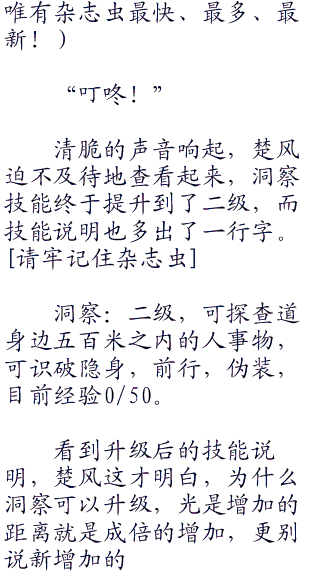 唯有杂志虫最快、最多、最
新！）
“叮咚！”
清脆的声音响起，楚风
迫不及待地查看起来，洞察
技能终于提升到了二级，而
技能说明也多出了一行字。
[请牢记住杂志虫]
洞察：二级，可探查道
身边五百米之内的人事物，
可识破隐身，前行，伪装，
目前经验0/50。
看到升级后的技能说
明，楚风这才明白，为什么
洞察可以升级，光是增加的
距离就是成倍的增加，更别
说新增加的